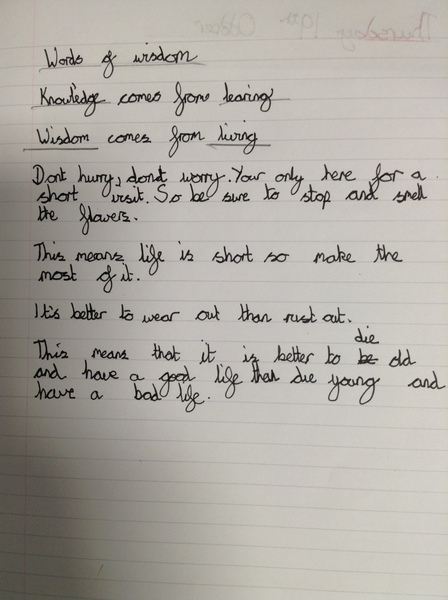 Words of wisdom
Knowledge comes from learing
Wisdom comes from living
Dont hurry, dont worry. Your only here for a
short visit. So be sure to stop and smell
the flowers.
This means life is short so make the
most of it.
It's better to wear out than rust out.
die
This means that it is better to be old
and have a good life than die young and
have a bad life.
Thursday 19th October